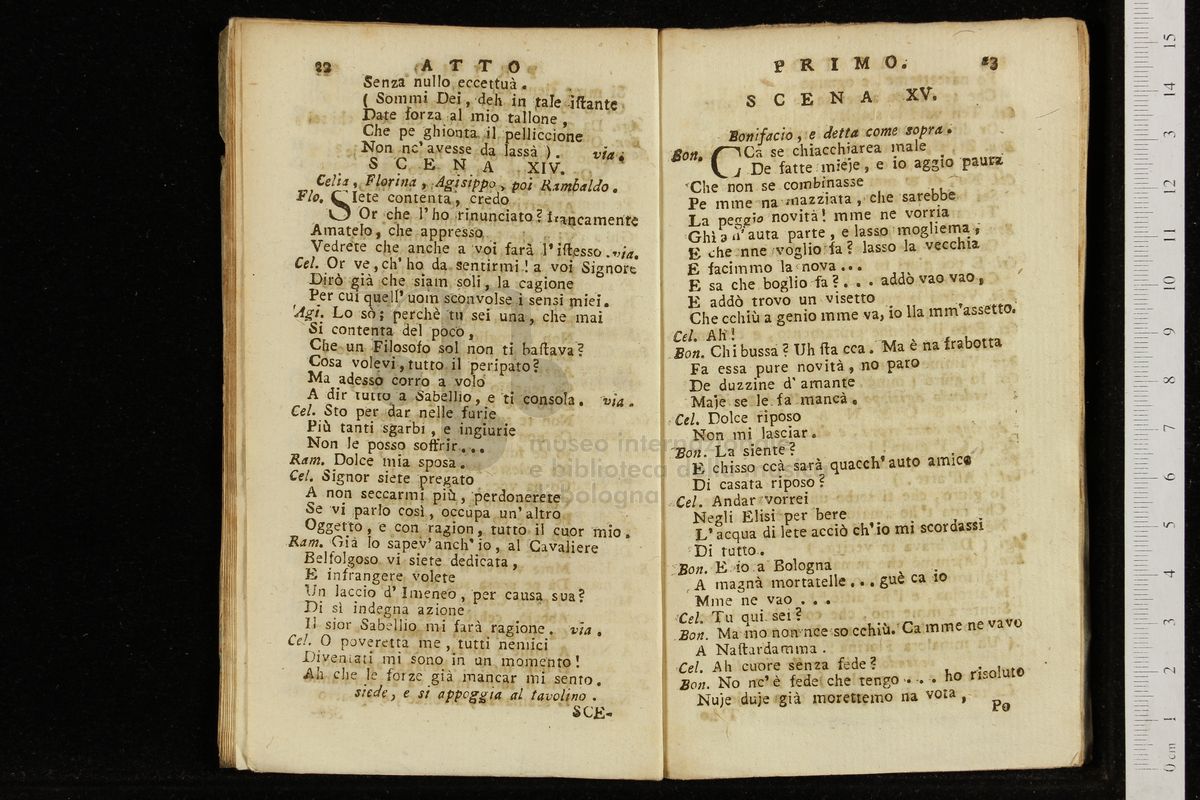 22 ATTO
Senza nullo eccettuà.
( Sommi Dei, deh in tale iſtante
Date forza al mio tallone,
Che pe ghionta il pelliccione
Non nc' avesse da lassà ). via.
SCENA XIV.
Celia, Florina, Agisippo, poi Rambaldo.
Flo. SIete contenta, credo
Or che l' ho rinunciato? francamente
Amatelo, che appresso
Vedrete che anche a voi farà l' iſtesso. via.
Cel. Or ve, ch' ho da sentirmi! a voi Signore
Dirò già che siam soli, la cagione
Per cui quell' uom sconvolse i sensi miei.
Agi. Lo sò; perchè tu sei una, che mai
Si contenta del poco,
Che un Filosofo sol non ti baſtava?
Cosa volevi, tutto il peripato?
Ma adesso corro a volo
A dir tutto a Sabellio, e ti consola. via.
Cel. Sto per dar nelle furie
Più tanti sgarbi, e ingiurie
Non le posso soffrir...
Ram. Dolce mia sposa.
Cel. Signor siete pregato
A non seccarmi più, perdonerete
Se vi parlo così, occupa un' altro
Oggetto, e con ragion, tutto il cuor mio.
Ram. Già lo sapev' anch' io, al Cavaliere
Belfolgoso vi siete dedicata,
E infrangere volete
Un laccio d' Imeneo, per causa sua?
Di sì indegna azione
Il sior Sabellio mi farà ragione. via.
Cel. O poveretta me, tutti nemici
Diventati mi sono in un momento!
Ah che le forze già mancar mi sento.
siede, e si appoggia al tavolino.
SCE-
PRIMO. 23
SCENA XV.
Bonifacio, e detta come sopra.
Bon. CCà se chiacchiarea male
De fatte mieje, e io aggio paura
Che non se combinasse
Pe mme na mazziata, che sarebbe
La peggio novità! mme ne vorria
Ghì a n' auta parte, e lasso mogliema;
E che nne voglio fa? lasso la vecchia
E facimmo la nova...
E sa che boglio fa?... addò vao vao,
E addò trovo un visetto
Che cchiù a genio mme va, io lla mm' assetto.
Cel. Ah!
Bon. Chi bussa? Uh ſta cca. Ma è na frabotta
Fa essa pure novità, no paro
De duzzine d' amante
Maje se le fa mancà.
Cel. Dolce riposo
Non mi lasciar.
Bon. La siente?
E chisso ccà sarà quacch' auto amico
Di casata riposo?
Cel. Andar vorrei
Negli Elisi per bere
L' acqua di lete acciò ch' io mi scordassi
Di tutto.
Bon. E io a Bologna
A magnà mortatelle... guè ca io
Mme ne vao...
Cel. Tu qui sei?
Bon. Ma mo non nce so cchiù. Ca mme ne vavo
A Naſtardamma.
Cel. Ah cuore senza fede?
Bon. No nc' è fede che tengo... ho risoluto
Nuje duje già morettemo na vota,
Po
museo internazionale
e biblioteca della musica
di bologna
0 cm 1 2 3 4 5 6 7 8 9 10 11 12 13 14 15